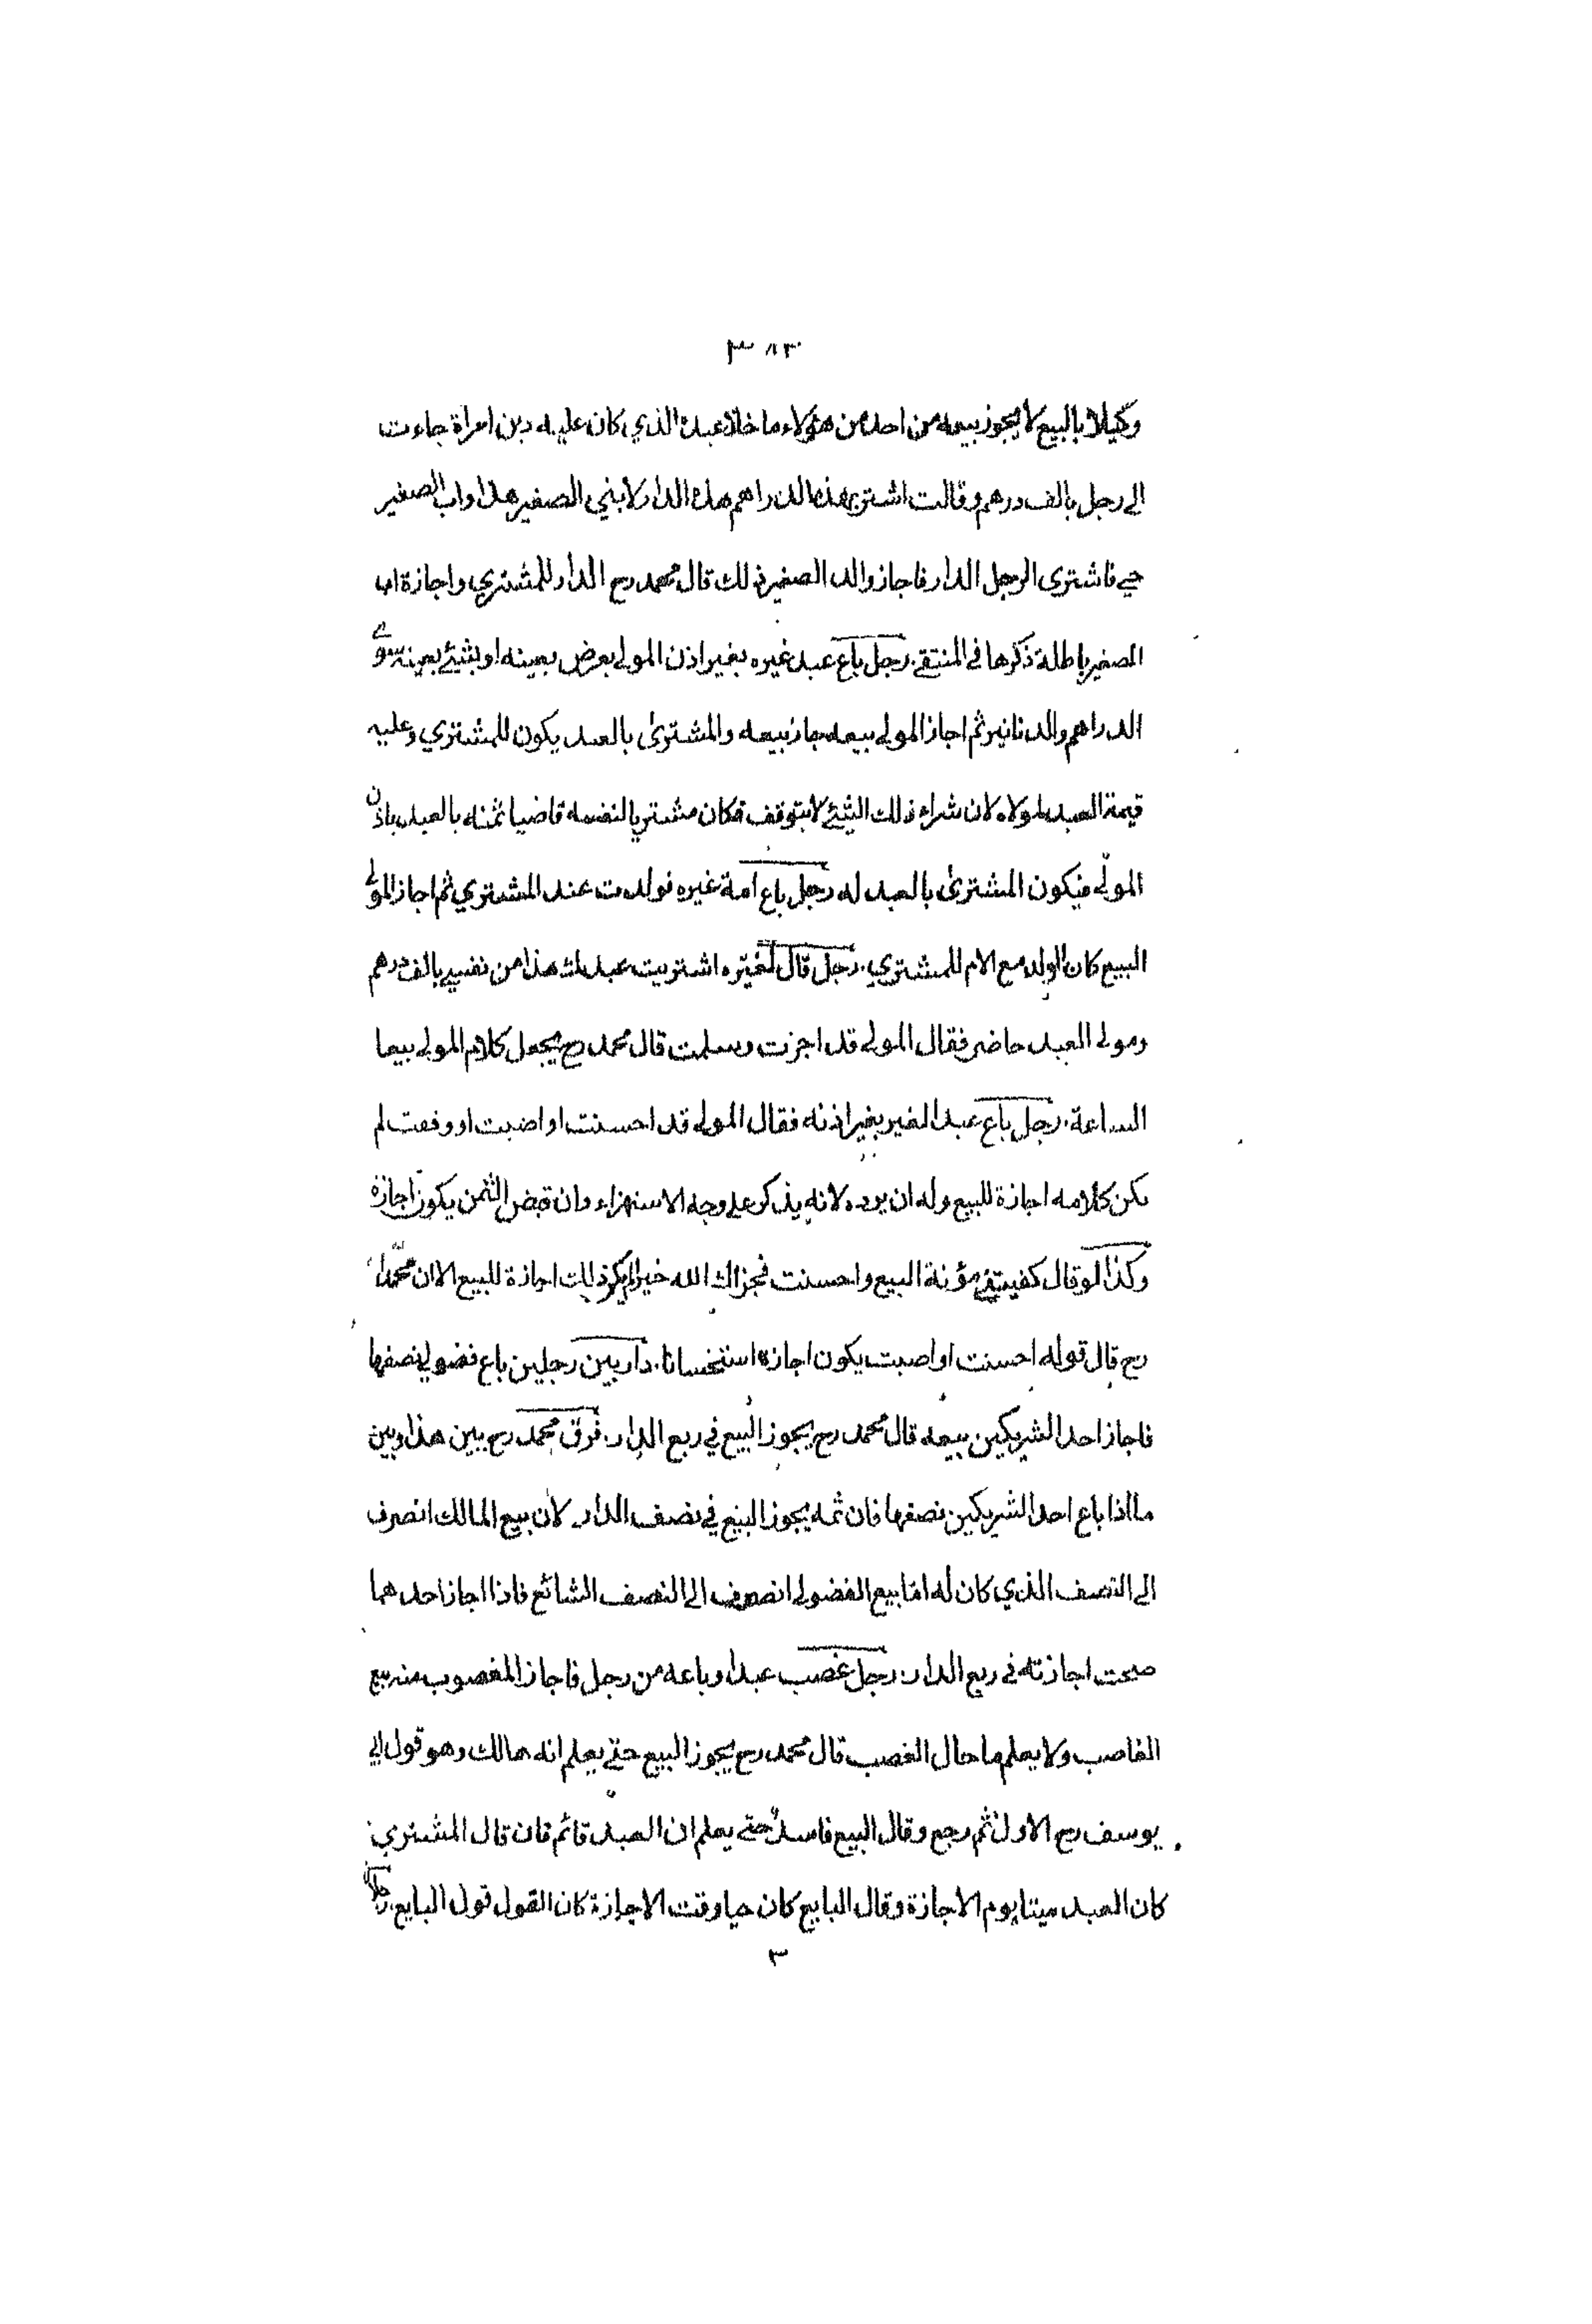 ٣٨٣
وكيلا بالبيع لا يجوز بيعه من احد من هؤلاء ما خلا عبده الذي كان عليه دين امرأة جاءت
الى رجل بالف درهم وقالت اشتر بهذه الدراهم هذه الدار لابني الصغير هذا واب الصغير
حي فاشترى الرجل الدار فاجاز والد الصغير ذلك قال محمد رح الدار للمشتري واجازة اب
الصغير باطلة ذكرها في المنتقى. رجل باع عبد غيره بغير اذن المولى بعرض بعينه او بشيئ بعينه سوى
الدراهم والدنانير ثم اجاز المولى بيعه جاز بيعه والمشترى بالعبد يكون للمشتري وعليه
قيمة العبد لمولاه لان شراء ذلك الشيئ لا يتوقف فكان مشتريا لنفسه قاضيا ثمنه بالعبد باذن
المولى فيكون المشترى بالعبد له رجل باع امة غيره فولدت عند المشتري ثم اجاز المولى
البيع كان الولد مع الام للمشتري. رجل قال لغيره اشتريت عبدك هذا من نفسي بالف درهم
ومولى العبد حاضر فقال المولى قد اجزت وسلمت قال محمد رح يجعل كلام المولى بيعا
الساعة. رجل باع عبد الغير بغير اذنه فقال المولى قد احسنت او اصبت او وفقت لم
يكن كلامه اجازة للبيع وله ان يرده لانه يذكر على وجه الاستهزاء وان قبض الثمن يكون اجازة
وكذا لو قال كفيتني مؤنة البيع واحسنت فجزاك الله خيرا لم يكن ذلك اجازة للبيع الا ان محمدا
رح قال قوله احسنت او اصبت يكون اجازة استحسانا. دار بين رجلين باع فضولي نصفها
فاجاز احد الشريكين بيعه قال محمد رح يجوز البيع في ربع الدار. فرق محمد رح بين هذا وبين
ما اذا باع احد الشريكين نصفها فان ثمه يجوز البيع في نصف الدار لان بيع المالك انصرف
الى النصف الذي كان له اما بيع الفضولي انصرف الى النصف الشائع فاذا اجاز احدهما
صحت اجازته في ربع الدار. رجل غصب عبدا وباعه من رجل فاجاز المغصوب منه بيع
الغاصب ولا يعلم ما حال الغصب قال محمد رح يجوز البيع حتى يعلم انه هالك وهو قول ابي
يوسف رح الاول ثم رجع وقال البيع فاسد حتى يعلم ان العبد قائم فان قال المشتري
كان العبد ميتا يوم الاجازة وقال البايع كان حيا وقت الاجازة كان القول قول البايع.
٣